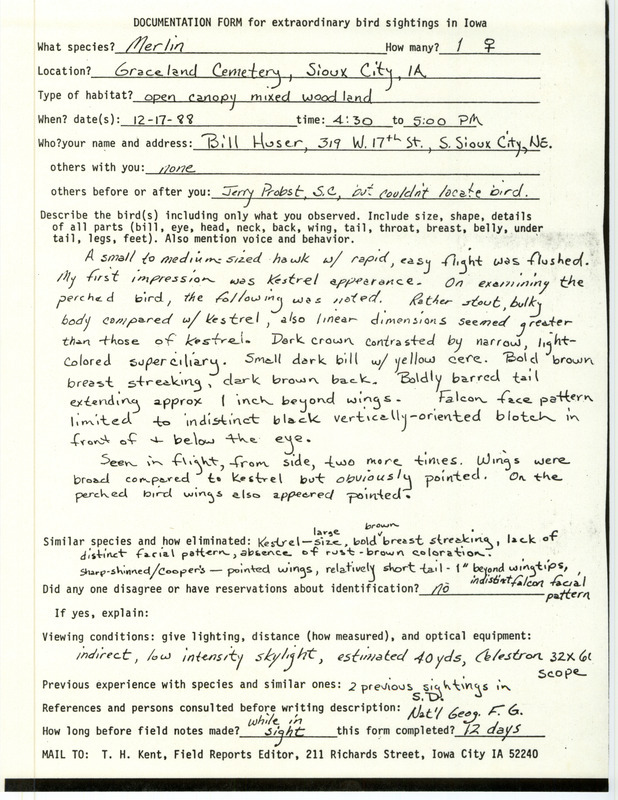 DOCUMENTATION FORM for extraordinary bird sightings in Iowa
What species? Merlin How many? 1 ♀
Location? Graceland Cemetery, Sioux City, IA
Type of habitat? open canopy mixed woodland
When? date(s): 12-17-88 time: 4:30 to 5:00 PM
Who?your name and address: Bill Huser, 319 W. 17th St., S. Sioux City, NE.
others with you: none
others before or after you: Jerry Probst, S.C, but couldn't locate bird.
Describe the bird(s) including only what you observed. Include size, shape, details
of all parts (bill, eye, head, neck, back, wing, tail, throat, breast, belly, under
tail, legs, feet). Also mention voice and behavior.
A small to medium-sized hawk w/ rapid, easy flight was flushed.
My first impression was Kestrel appearance. On examining the
perched bird, the following was noted. Rather stout, bulky
body compared w/ Kestrel, also linear dimensions seemed greater
than those of Kestrel. Dark crown contrasted by narrow, light-
colored superciliary. Small dark bill w/ yellow cere. Bold brown
breast streaking, dark brown back. Boldly barred tail
extending approx 1 inch beyond wings. Falcon face pattern
limited to indistinct black vertically-oriented blotch in
front of + below the eye.
Seen in flight, from side, two more times. Wings were
broad compared to Kestrel but obviously pointed. On the
perched bird wings also appeared pointed.
Similar species and how eliminated: Kestrel - large size, bold brown breast streaking, lack of
distinct facial pattern, absence of rust-brown coloration.
Sharp-shinned/Cooper's - pointed wings, relatively short tail - 1" beyond wingtips,
indistinct falcon facial
Did any one disagree or have reservations about identification? no
pattern
If yes, explain:
Viewing conditions: give lighting, distance (how measured), and optical equipment:
indirect, low intensity skylight, estimated 40yds, Celestron 32X
scope
Previous experience with species and similar ones: 2 previous sightings in
S.D.
References and persons consulted before writing description: Nat'l Geog. F. G.
How long before field notes made? while in sight this form completed? 12 days
MAIL TO: T. H. Kent, Field Reports Editor, 211 Richards Street, Iowa City IA 52240